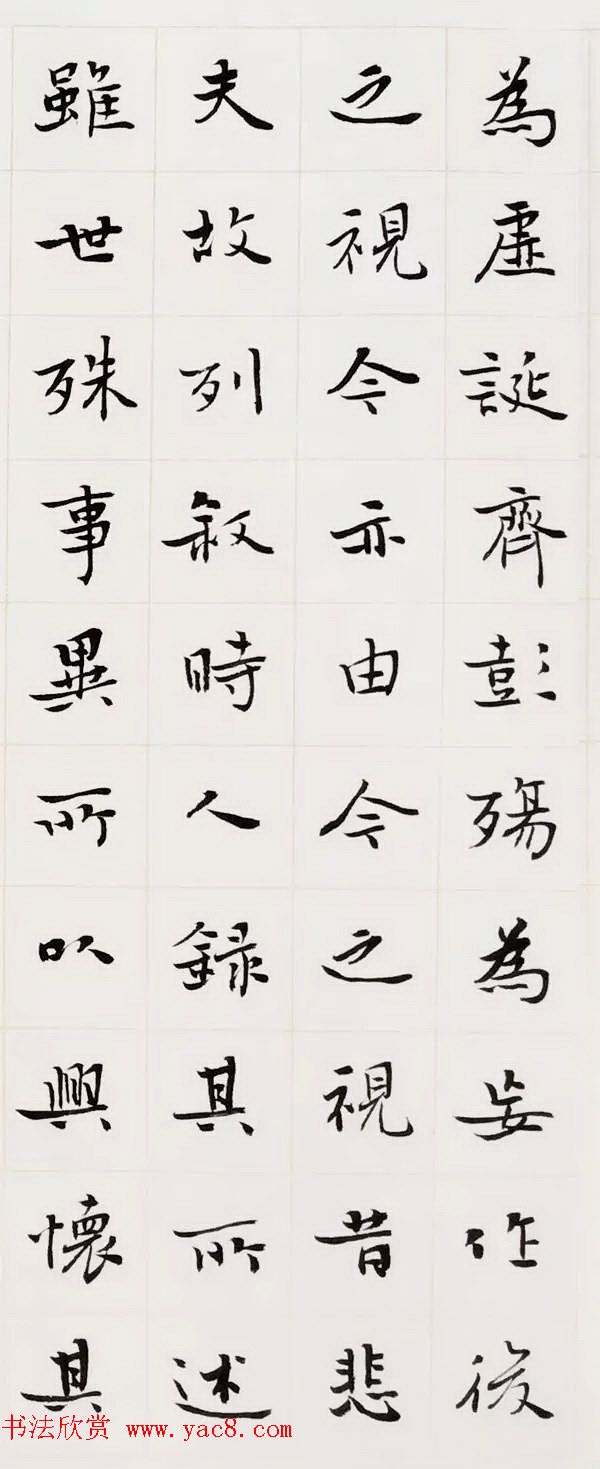 為虛誕齊彭殤為妄作後
之視今亦由今之視昔悲
夫故列叙時人録其所述
雖世殊事異所以興懷其
书法欣赏 www.yac8.com